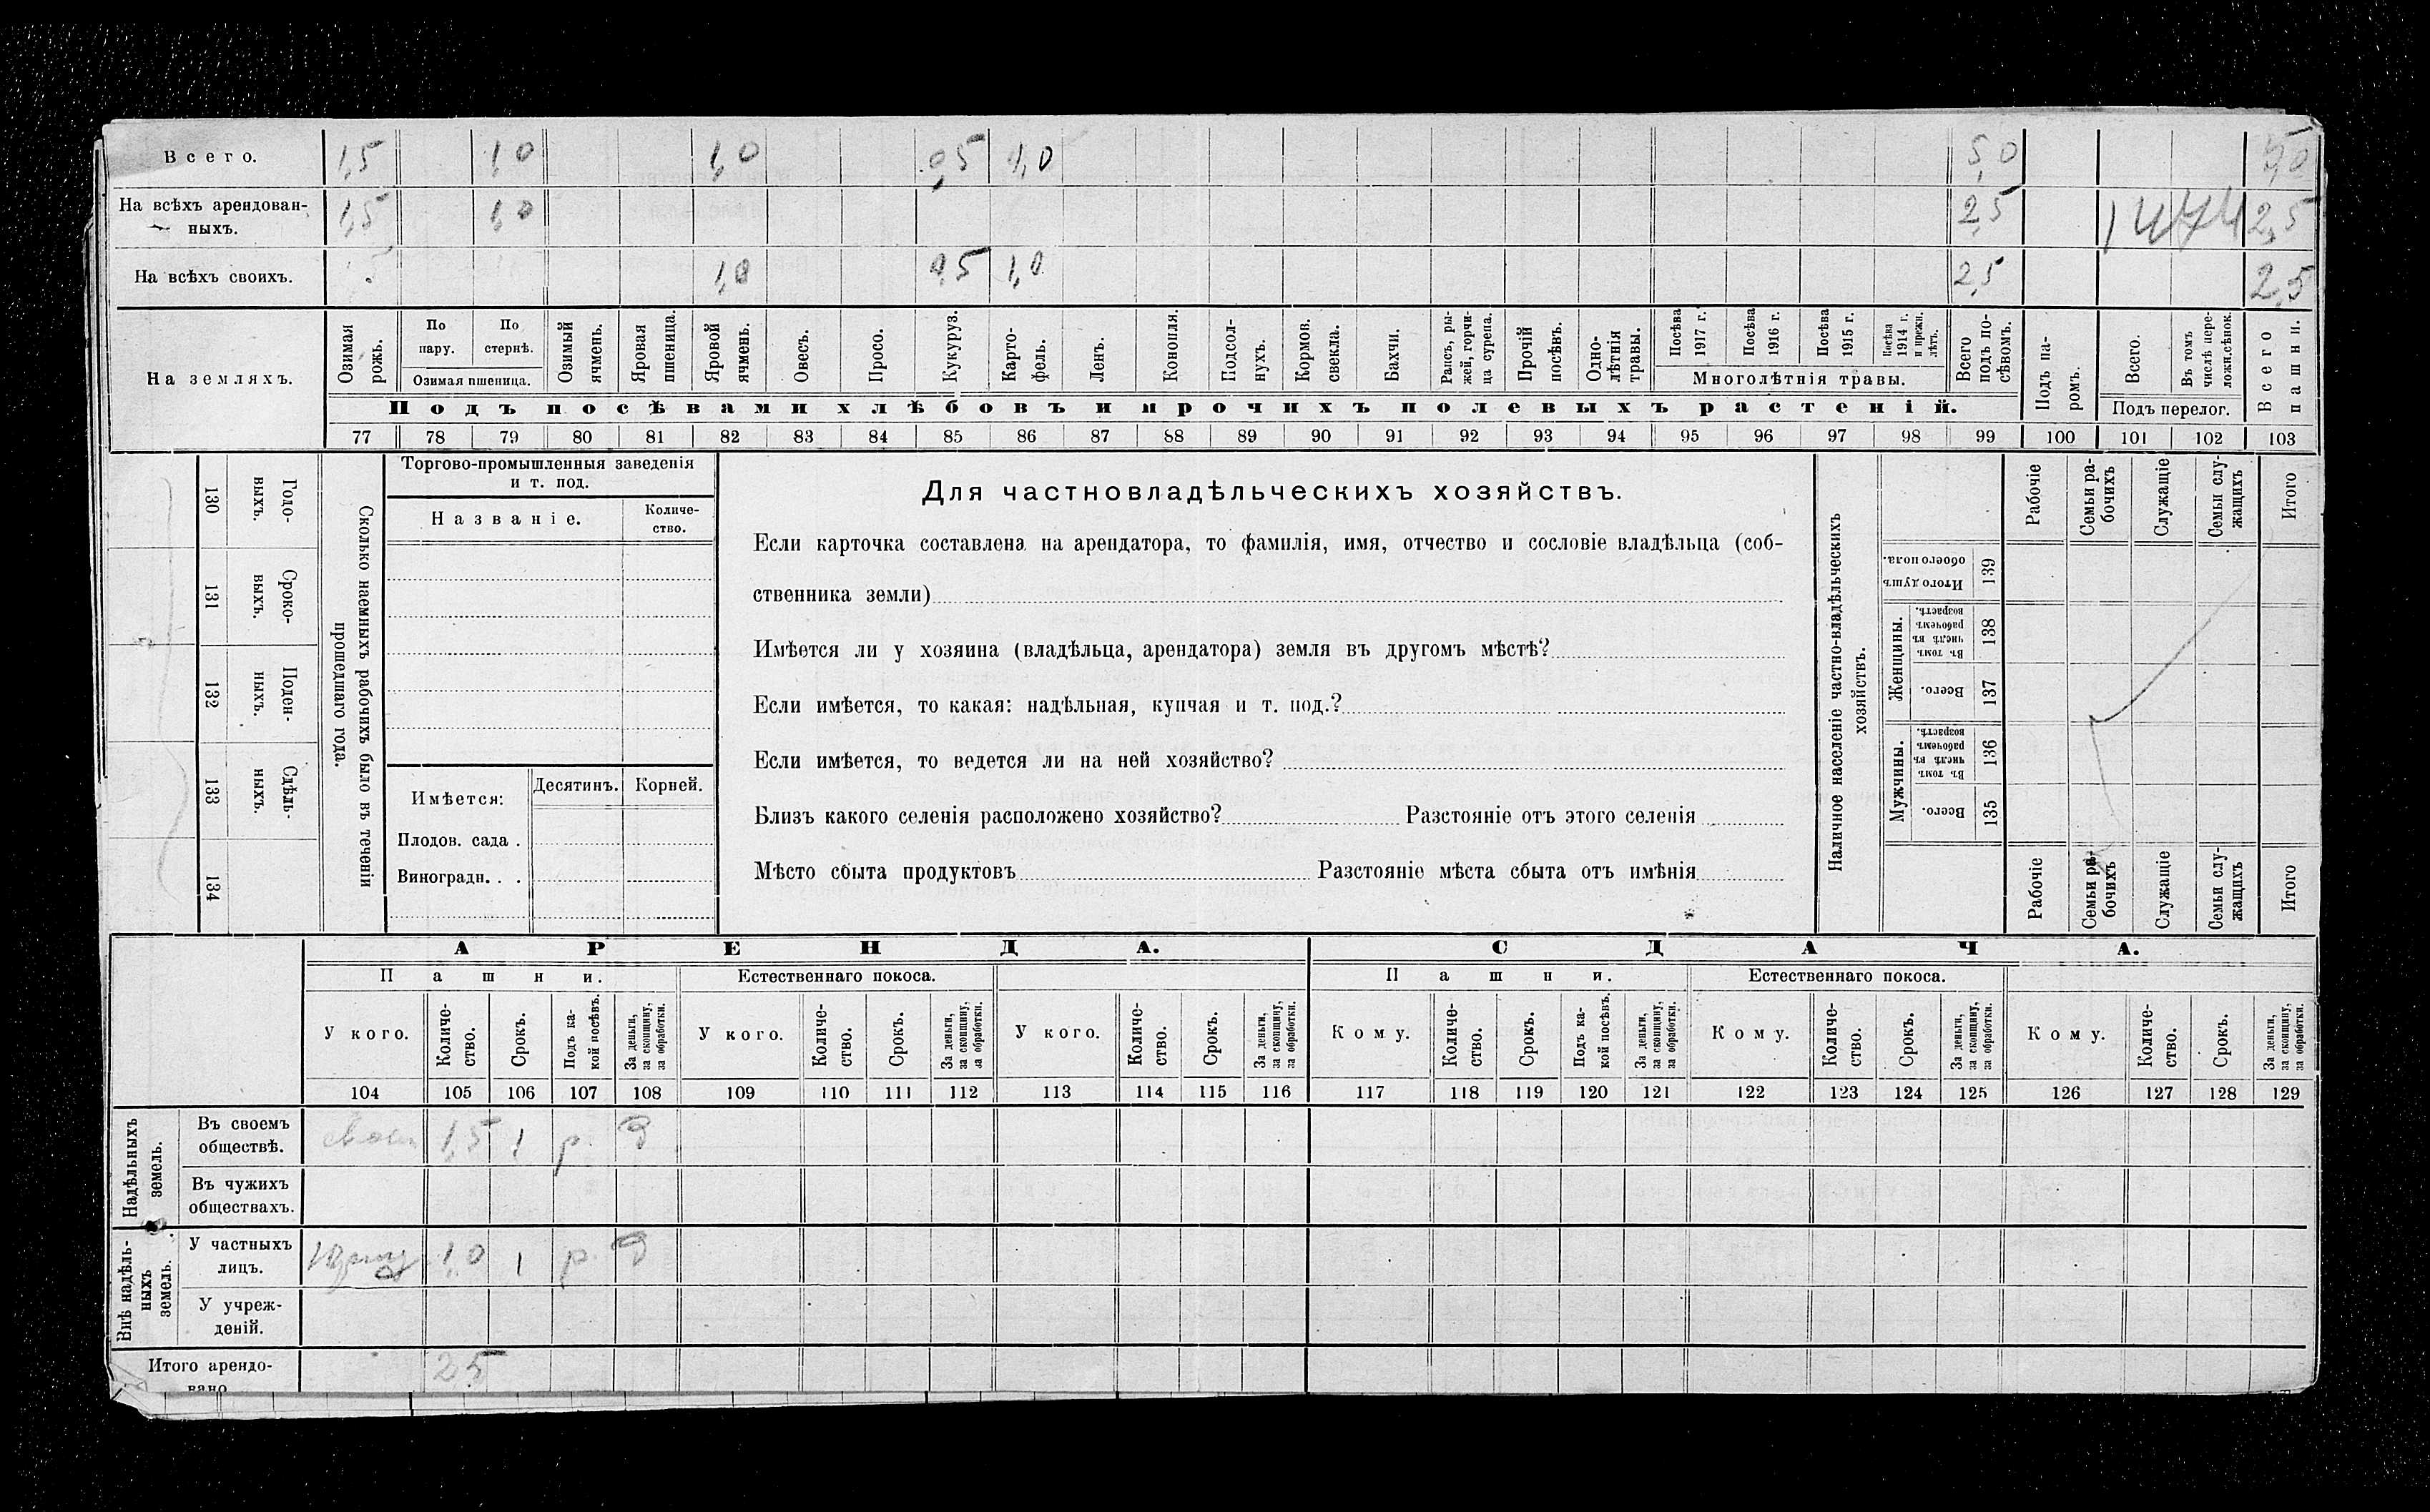 Всего. 1,5 1,0 1,0 0,5 1,0 5,0 5,0
На всѣхъ арендован-
ныхъ. 1,5 1,0 2,5 1474 2,5
На всѣхъ своихъ. 1,0 0,5 1,0 2,5 2,5
На земляхъ.
Озимая рожь.
По пару.
По стернѣ.
Озимая пшеница.
Озимый ячмень.
Яровая пшеница.
Яровой ячмень.
Овесъ.
Просо.
Кукуруз.
Карто-
фель.
Ленъ.
Конопля.
Подсол-
нухъ.
Кормов. свекла.
Бахчи.
Рапсъ, ры-
жей, горчи-
ца сурепа.
Прочій посѣвъ.
Одно-
лѣтнія
травы.
Посѣва 1917 г.
Посѣва 1916 г.
Посѣва 1915 г.
Посѣва 1914 г. и прежн. лѣтъ.
Многолѣтнія травы.
Всего подъ по-
сѣвомъ.
Подъ па-
ромъ.
Всего.
Въ томъ числѣ пере-
ложн.сѣнок.
Подъ перелог.
Всего пашни.
Подъ посѣвами хлѣбовъ и прочихъ полевыхъ растеній.
77 78 79 80 81 82 83 84 85 86 87 88 89 90 91 92 93 94 95 96 97 98 99 100 101 102 103
130 Годо-
выхъ.
131 Сроко-
выхъ.
132 Поден-
ныхъ.
133 Сдѣль-
ныхъ.
134
Сколько наемныхъ рабочихъ было въ теченіи
прошедшаго года.
Торгово-промышленныя заведенія
и т. под.
Названіе.
Количе-
ство.
Имѣется:
Десятинъ.
Корней.
Плодов. сада .
Виноградн. . .
Для частновладѣльческихъ хозяйствъ.
Если карточка составлена на арендатора, то фамилія, имя, отчество и сословіе владѣльца (соб-
ственника земли)
Имѣется ли у хозяина (владѣльца, арендатора) земля въ другомъ мѣстѣ?
Если имѣется, то какая: надѣльная, купчая и т. под.?
Если имѣется, то ведется ли на ней хозяйство?
Близъ какого селенія расположено хозяйство? Разстояніе отъ этого селенія
Мѣсто сбыта продуктовъ Разстояніе мѣста сбыта отъ имѣнія
Наличное населеніе частно-владѣльческихъ
хозяйствъ.
Рабочіе
Семьи ра-
бочихъ
Служащіе
Семьи слу-
жащихъ
Итого
Итого душъ
обоего пола.
139
Женщины.
Въ томъ числѣ въ рабочемъ возрастѣ.
138
Всего.
137
Мужчины.
Въ томъ числѣ въ рабочемъ возрастѣ.
136
Всего.
135
Рабочіе
Семьи ра-
бочихъ
Служащіе
Семьи слу-
жащихъ
Итого
АРЕНДА. СДАЧА.
Пашни. Естественнаго покоса. Пашни. Естественнаго покоса.
У кого.
Количе-
ство.
Срокъ.
Подъ ка-
кой посѣвъ.
За деньги,
за скопщину,
за обработки.
У кого.
Количе-
ство.
Срокъ.
За деньги,
за скопщину,
за обработки.
У кого.
Количе-
ство.
Срокъ.
За деньги,
за скопщину,
за обработки.
Кому.
Количе-
ство.
Срокъ.
Подъ ка-
кой посѣвъ.
За деньги,
за скопщину,
за обработки.
Кому.
Количе-
ство.
Срокъ.
За деньги,
за скопщину,
за обработки.
Кому.
Количе-
ство.
Срокъ.
За деньги,
за скопщину,
за обработки.
104 105 106 107 108 109 110 111 112 113 114 115 116 117 118 119 120 121 122 123 124 125 126 127 128 129
Надѣльныхъ
земель.
Въ своемъ
обществѣ. 1,5 1 р. д
Въ чужихъ
обществахъ.
Внѣ надѣль-
ныхъ
земель.
У частныхъ
лицъ. 1,0 1 р. д
У учреж-
деній.
Итого арендо-
вано 2,5